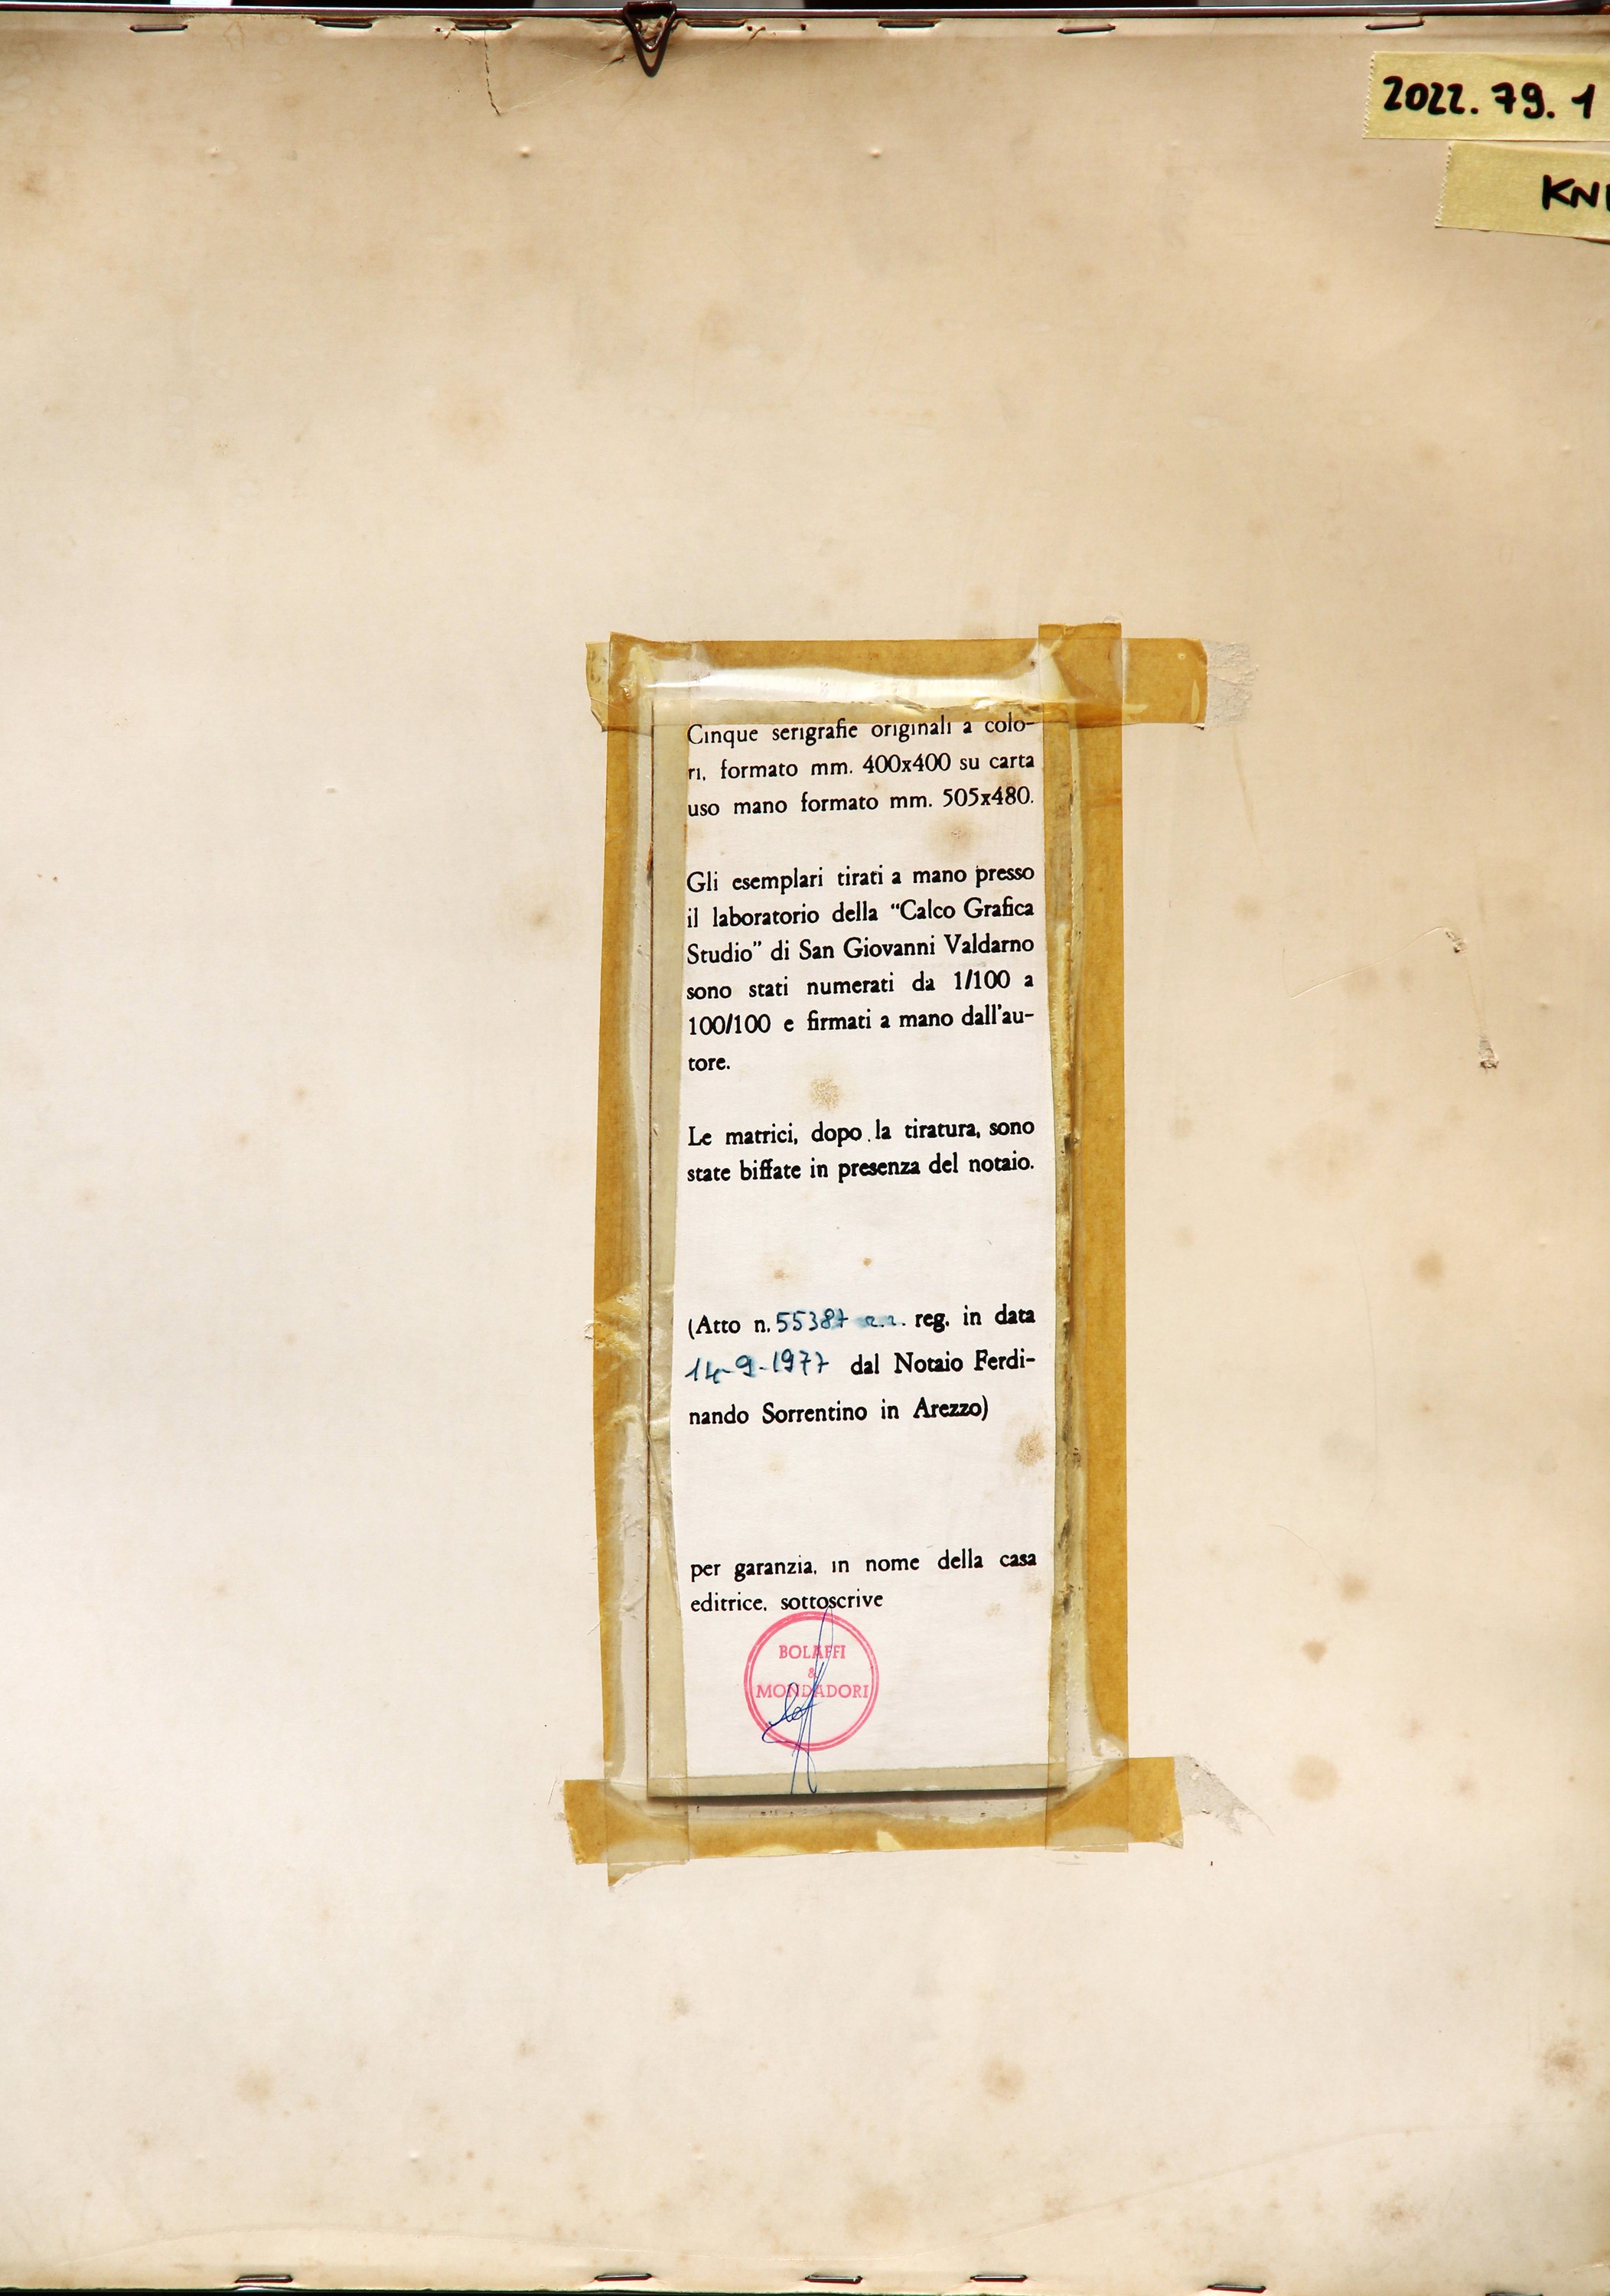 2022.79.1
KNI
Cinque serigrafie originali a colo-
ri, formato mm. 400x400 su carta
uso mano formato mm. 505x480.
Gli esemplari tirati a mano presso
il laboratorio della “Calco Grafica
Studio” di San Giovanni Valdarno
sono stati numerati da 1/100 a
100/100 e firmati a mano dall'au-
tore.
Le matrici, dopo la tiratura, sono
state biffate in presenza del notaio.
(Atto n. 55387 reg. in data
14-9-1977 dal Notaio Ferdi-
nando Sorrentino in Arezzo)
per garanzia, in nome della casa
editrice, sottoscrive
BOLAFFI
&
MONDADORI